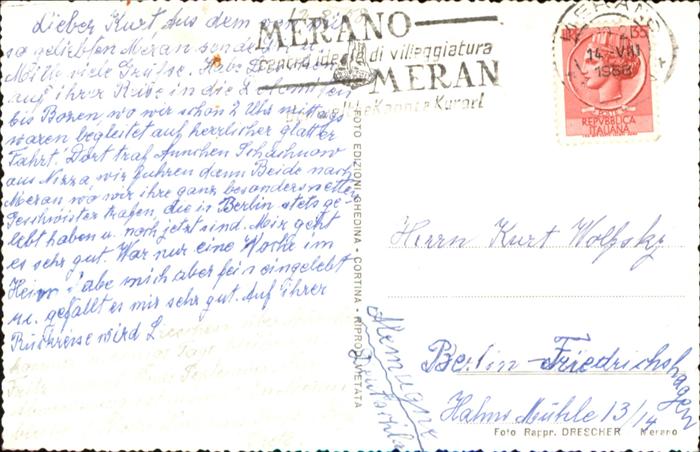 Lieber Kurt Aus dem
so geliebten Meran sende ich
Mitte viele Grüße. Habe
auf ihrer Reise in die Dolomiten
bis Bozen, wo wir schon 2 Uhr mittags
waren begleitet auf herrlicher glatter
Fahrt. Dort traf Annchen Schachnow
aus Nizza, wir fuhren dann Beide nach
Meran wo wir ihre ganz besonders netten
Geschwister trafen, die in Berlin stets ge-
lebt haben u. noch jetzt sind. Mir geht
es sehr gut. War nur eine Woche im
Heim habe mich aber fein eingelebt
u. gefällt es mir sehr gut. Auf ihrer
Rückreise wird L.
MERANO
di villeggiatura
MERAN
Kurort
MERANO
14-VIII
1968
35
POSTE
REPVBBLICA
ITALIANA
FOTO EDIZIONI GHEDINA - CORTINA - RIPROD. VIETATA
Herrn Kurt Wolfsky
Berlin-Friedrichshagen
Hahns Mühle 13/14
Alemagne
Deutschld
Foto Rappr. DRESCHER Merano